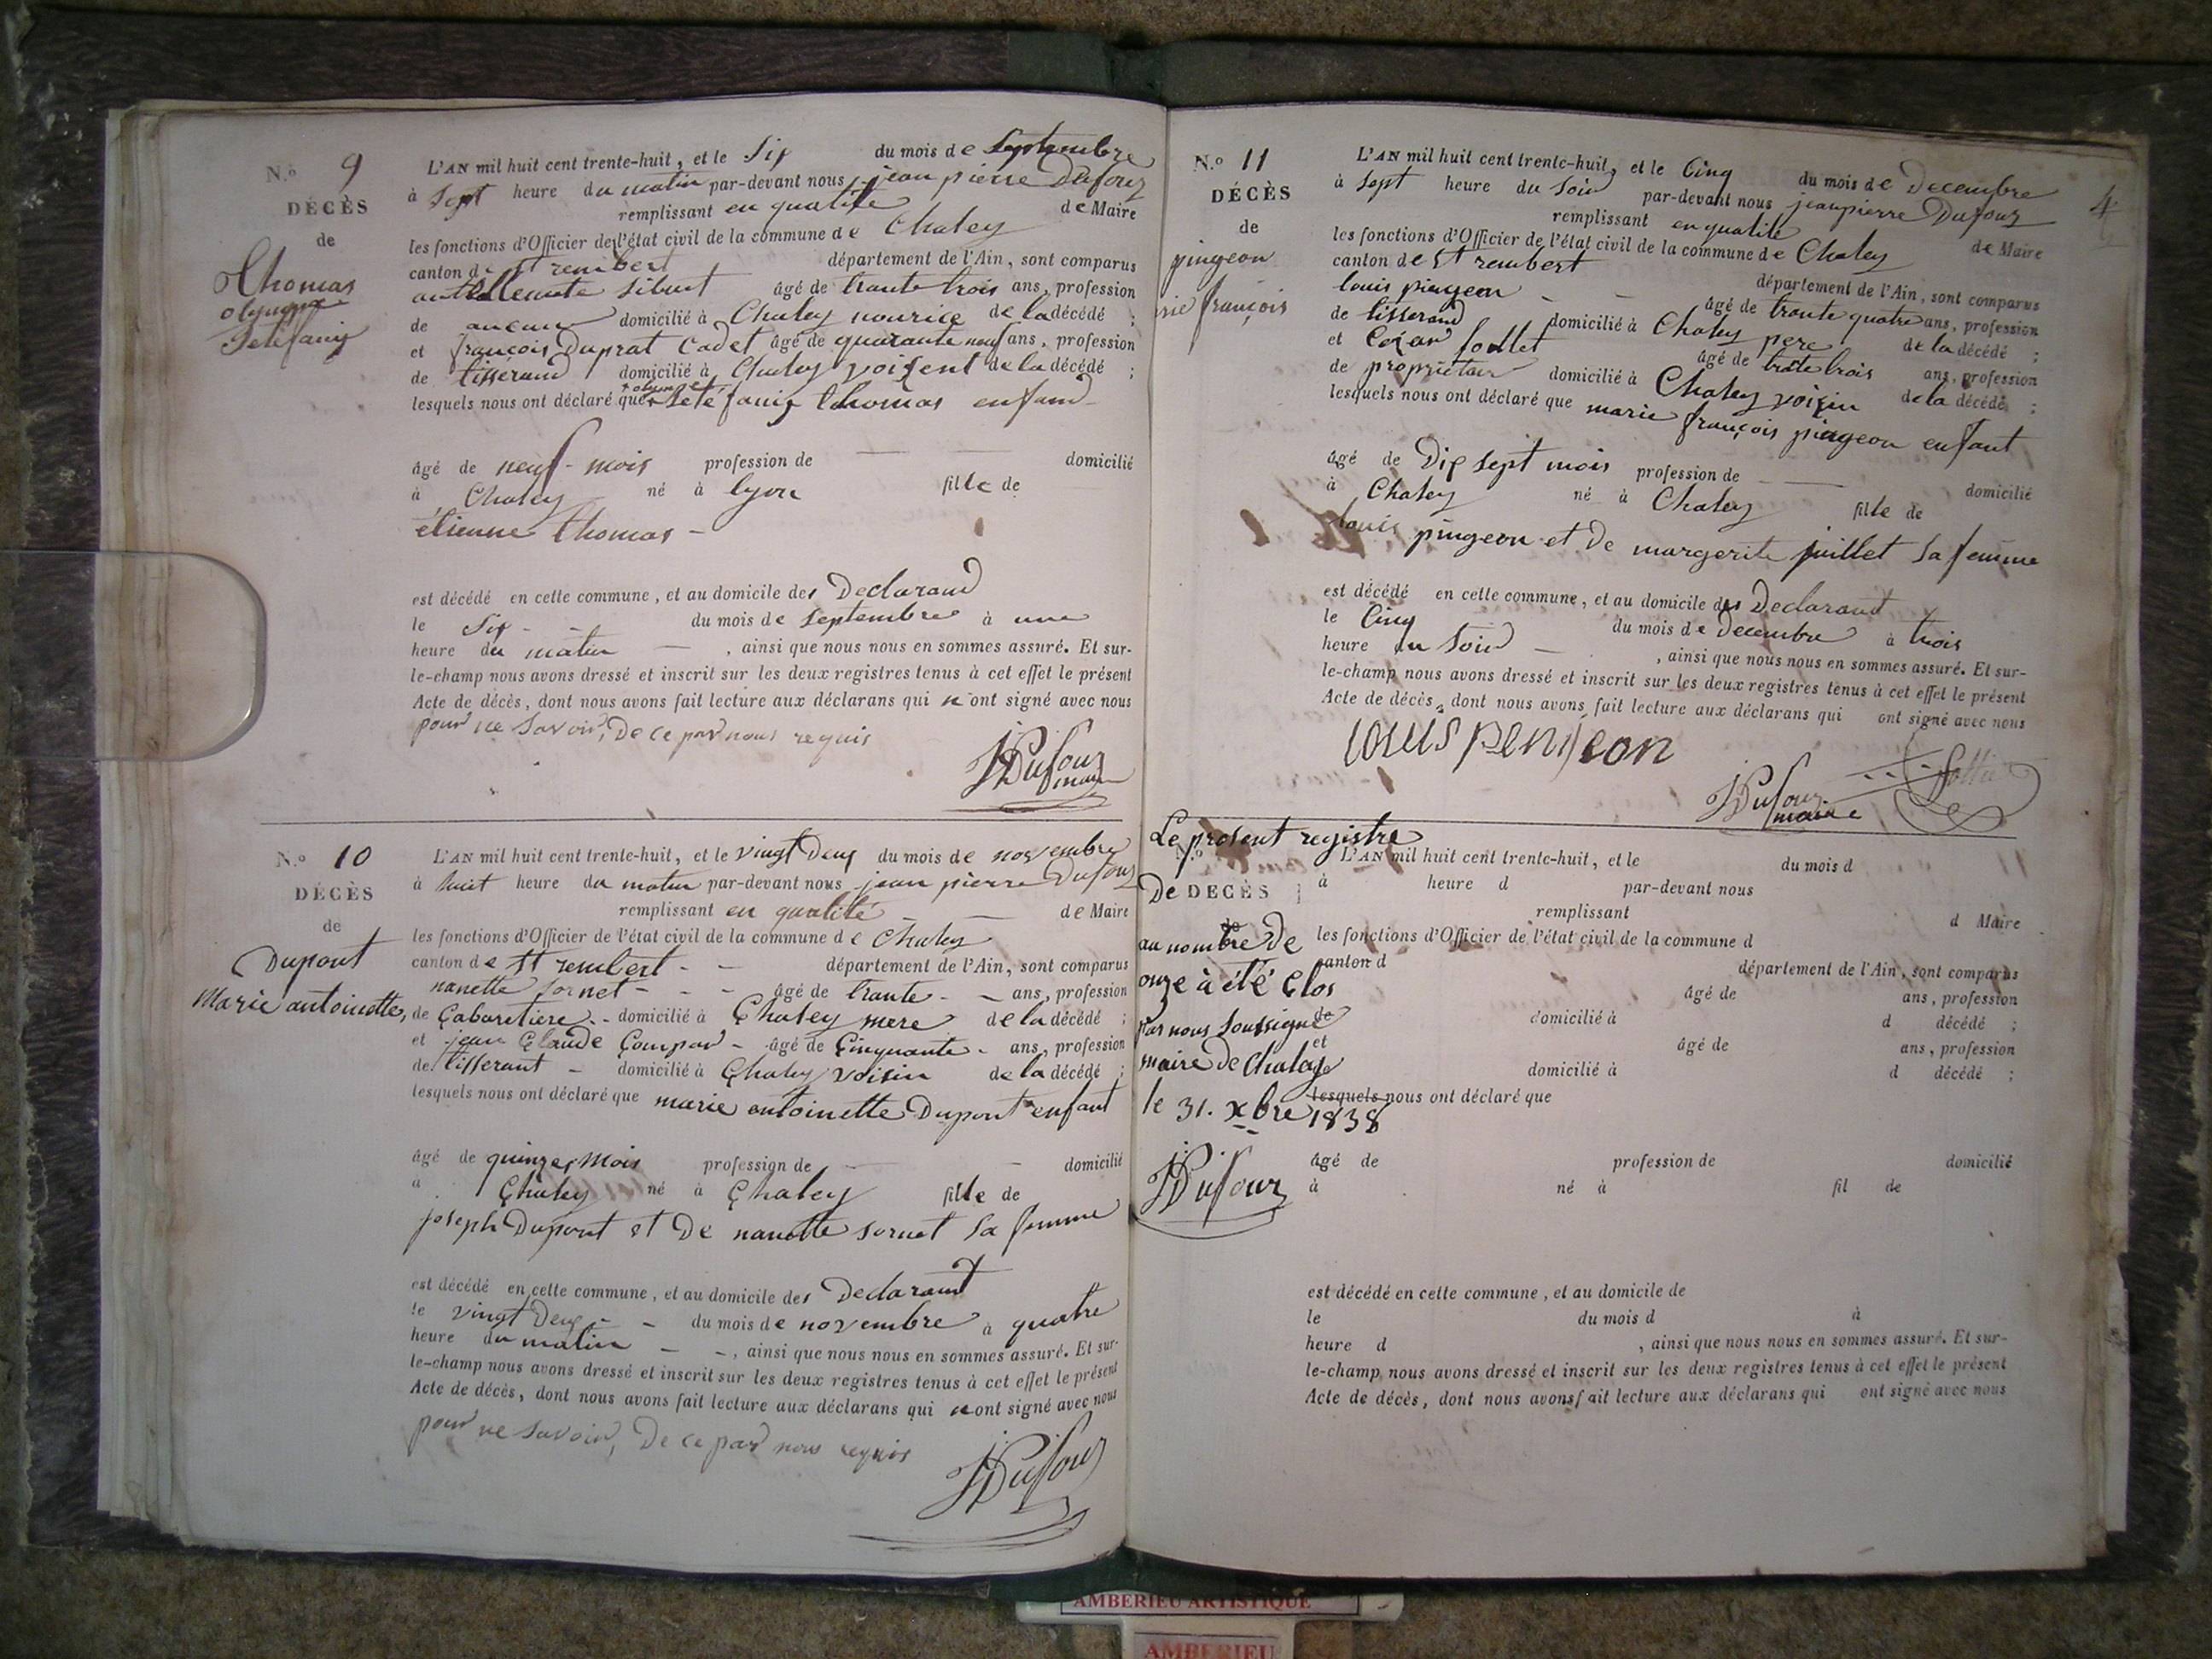 N.o 9
DÉCÈS
de
Thomas
olympe
Sétéfanie
L'AN mil huit cent trente-huit, et le Six du mois de Septembre
à Sept heure du matin par-devant nous jean pierre Dufour
remplissant en qualité de Maire
les fonctions d'Officier de l'état civil de la commune de Chaley
canton de St rembert département de l'Ain, sont comparus
Sibuet âgé de trante trois ans, profession
de aucune domicilié à Chaley nourice de la décédé ;
et françois Duprat Cadet âgé de quarante neuf ans, profession
de tisserand domicilié à Chaley voisent de la décédé ;
+ olympe
lesquels nous ont déclaré que + Sétéfanie thomas enfand
âgé de neuf-mois profession de — domicilié
à Chaley né à lyon fille de
étienne thomas -
est décédé en cette commune, et au domicile des Declarand
le Six - - du mois de Septembre à une
heure du matin — , ainsi que nous nous en sommes assuré. Et sur-
le-champ nous avons dressé et inscrit sur les deux registres tenus à cet effet le présent
Acte de décès, dont nous avons fait lecture aux déclarans qui n'ont signé avec nous
pour ne Savoir, De ce par nous requis
JPDufour
maire
N.o 10
DÉCÈS
de
Dupont
Marie antoinette,
L'AN mil huit cent trente-huit, et le vingt Deux du mois de novembre
à huit heure du matin par-devant nous jean pierre Dufour
remplissant en qualité — de Maire
les fonctions d'Officier de l'état civil de la commune de Chaley
canton de St rembert - - département de l'Ain, sont comparus
nanette Sornet - - - âgé de trante - - ans, profession
de Cabaretiere - - domicilié à Chaley mere de la décédé ;
et jean Claude Compar - âgé de Cinquante - ans, profession
de tisserant - domicilié à Chaley voisin de la décédé ;
lesquels nous ont déclaré que marie antoinette Dupont enfant
âgé de quinze Mois profession de — domicilié
à Chaley né à Chaley fille de
joseph Dupont et De nanette sornet Sa femme
est décédé en cette commune, et au domicile des Declarant
le vingt Deux - - du mois de novembre à quatre
heure du matin - -, ainsi que nous nous en sommes assuré. Et sur-
le-champ nous avons dressé et inscrit sur les deux registres tenus à cet effet le présent
Acte de décès, dont nous avons fait lecture aux déclarans qui n'ont signé avec nous
pour ne Savoir, De ce par nous requis
JPDufour
4
N.o 11
DÉCÈS
de
pingeon
rie françois
L'AN mil huit cent trente-huit, et le Cinq du mois de Decembre
à Sept heure du Soir par-devant nous jeanpierre Dufour
remplissant en qualité de Maire
les fonctions d'Officier de l'état civil de la commune de Chaley
canton de St rembert département de l'Ain, sont comparus
louis pingeon - - âgé de trante quatre ans, profession
de tisserand domicilié à Chaley pere de la décédé ;
et Cézar follet âgé de trate trois ans, profession
de propriétair domicilié à Chaley voizin de la décédé ;
lesquels nous ont déclaré que marie françois pingeon enfant
âgé de Dix sept mois profession de — domicilié
à Chaley né à Chaley fille de
louis pingeon et De margerite juillet Sa femme
est décédé en cette commune, et au domicile des Declarant
le Cinq du mois de Decembre à trois
heure du Soir — , ainsi que nous nous en sommes assuré. Et sur-
le-champ nous avons dressé et inscrit sur les deux registres tenus à cet effet le présent
Acte de décès, dont nous avons fait lecture aux déclarans qui ont signé avec nous
louis penjeon
JPDufour
maire
Le présent registre
De DÉCÈS
au nombre De
onze à été Clos
Par nous Soussigné
maire De Chaley
le 31. Xbre 1838
JPDufour
N.o
de
L'AN mil huit cent trente-huit, et le du mois d
à heure d par-devant nous
remplissant d Maire
les fonctions d'Officier de l'état civil de la commune d
canton d département de l'Ain, sont comparus
âgé de ans, profession
de domicilié à d décédé ;
et âgé de ans, profession
de domicilié à d décédé ;
lesquels nous ont déclaré que
âgé de profession de domicilié
à né à fil de
est décédé en cette commune, et au domicile de
le du mois d à
heure d , ainsi que nous nous en sommes assuré. Et sur-
le-champ nous avons dressé et inscrit sur les deux registres tenus à cet effet le présent
Acte de décès, dont nous avons fait lecture aux déclarans qui ont signé avec nous
AMBERIEU ARTISTIQUE
AMBERIEU